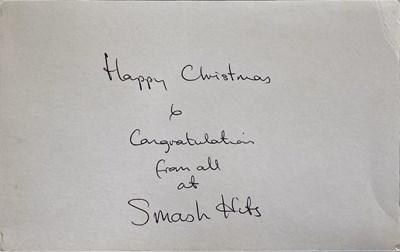 Happy Christmas
&
Congratulations
from all
at
Smash Hits